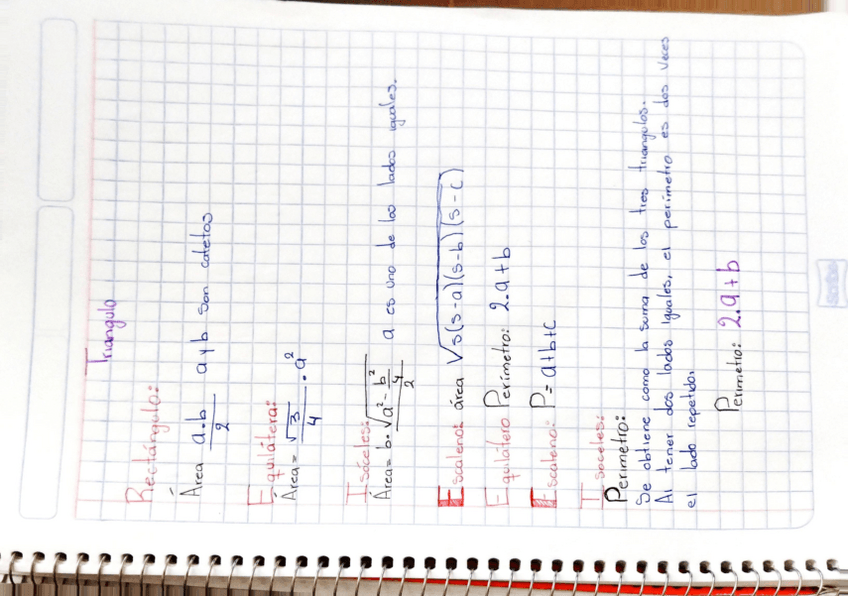 Triangulo
Rectángulo:
Área a.b/2 a y b son catetos
Equilátera:
Área = √3/4 . a²
Isóceles:
Área = b.√a² - b²/4 / 2 a es uno de los lados iguales.
Escaleno: área √s(s-a)(s-b)(s-c)
Equilátero Perímetro: 2.a+b
Escaleno: P= a+b+c
Isoceles:
Perimetro:
Se obtiene como la suma de los tres triangulos.
Al tener dos lados iguales, el perimetro es dos veces
el lado repetido.
Perimetro: 2.a+b
Scribe